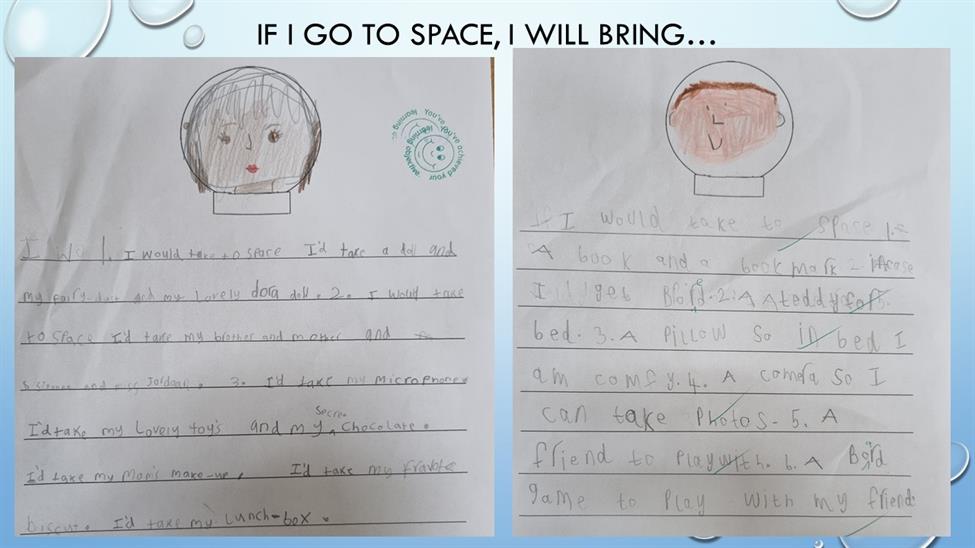 IF I GO TO SPACE, I WILL BRING...
You've achieved your learning objective
I wo 1. I would take to space I'd take a doll and
my fairy-dust and my Lovely dora doll. 2. I would take
to space I'd take my brother and mother and
and miss Jordan. 3. I'd take my microphone
secre.
I'd take my Lovely toy's and my chocolate.
I'd take my Mom's make-up. I'd take my fravote
biscut. I'd take my Lunch-box.
If I would take to space 1.
A book and a bookmark incase
I get Bord. 2. A teddy for
bed. 3. A PILLOW so in bed I
am comfy. 4. A camera so I
can take Photos. 5. A
friend to Play with. 6. A Bord
game to Play with my friends